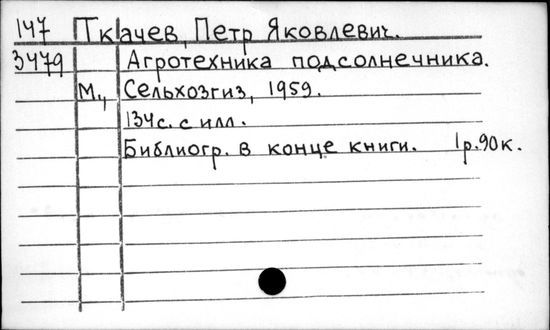 147 Ткачев, Петр Яковлевич.
3479 Агротехника подсолнечника.
М., Сельхозгиз, 1959.
134с. с илл.
Библиогр. в конце книги. 1р.90к.